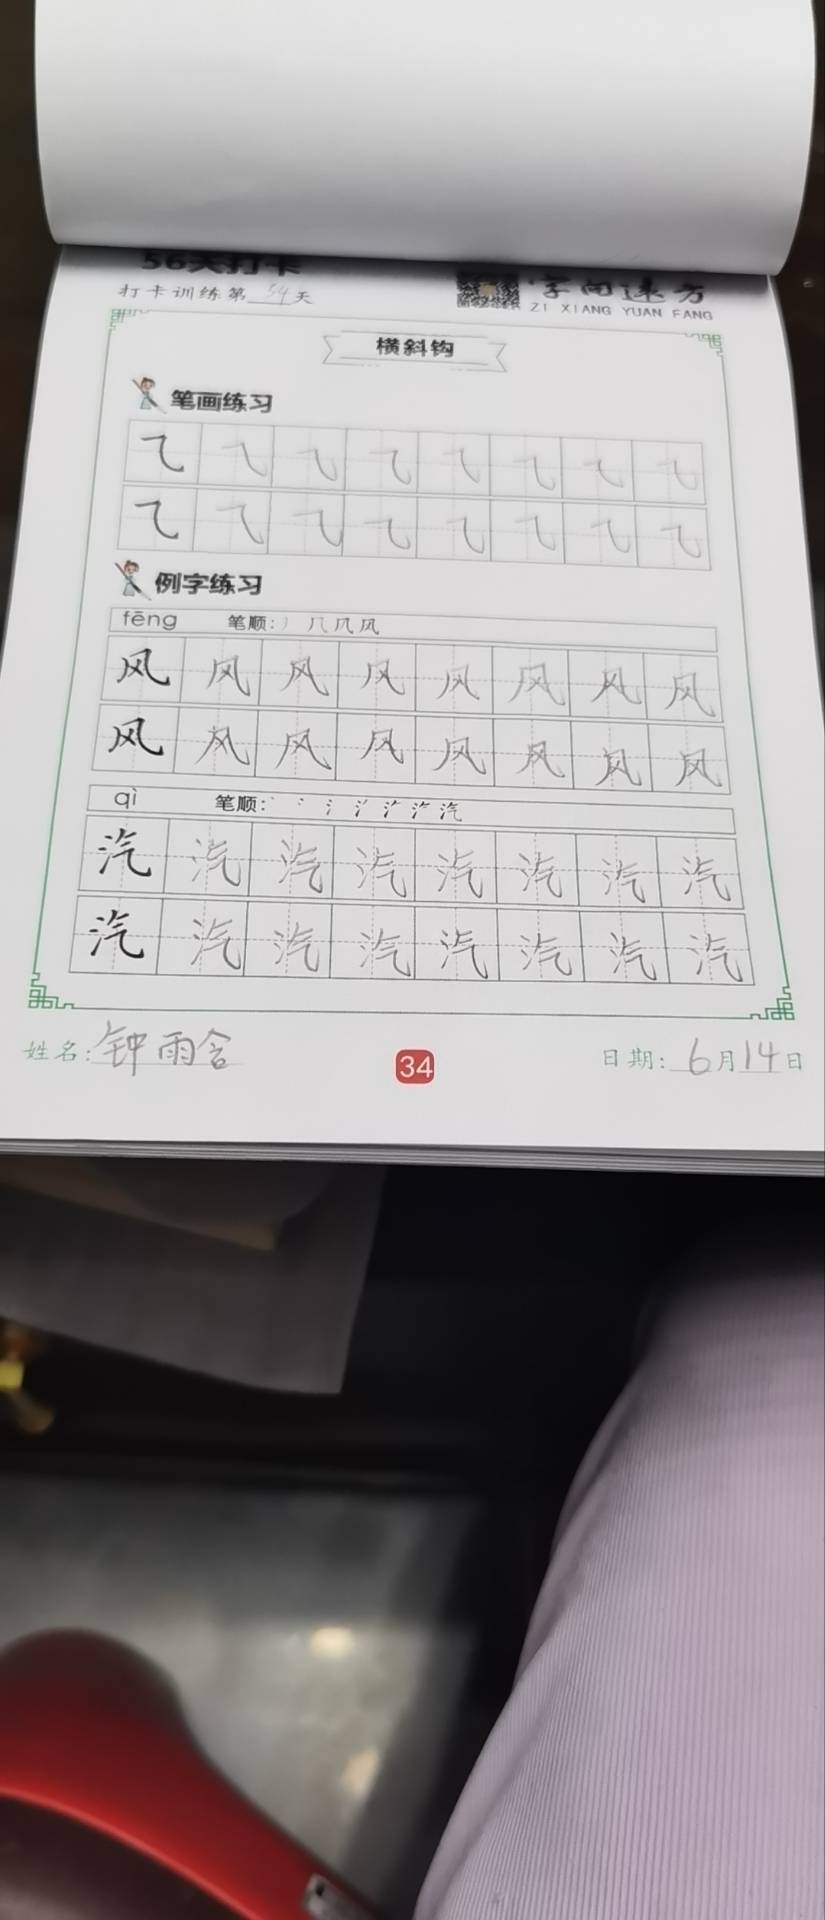 56天打卡
打卡训练第34天
字向远方
ZI XIANG YUAN FANG
横斜钩
笔画练习
⺄ ⺄ ⺄ ⺄ ⺄ ⺄ ⺄ ⺄
⺄ ⺄ ⺄ ⺄ ⺄ ⺄ ⺄ ⺄
例字练习
fēng 笔顺: 丿 几 凡 风
风 风 风 风 风 风 风 风
风 风 风 风 风 风 风 风
qì 笔顺: 汽
汽 汽 汽 汽 汽 汽 汽 汽
汽 汽 汽 汽 汽 汽 汽 汽
姓名: 钟雨含
34
日期: 6月14日